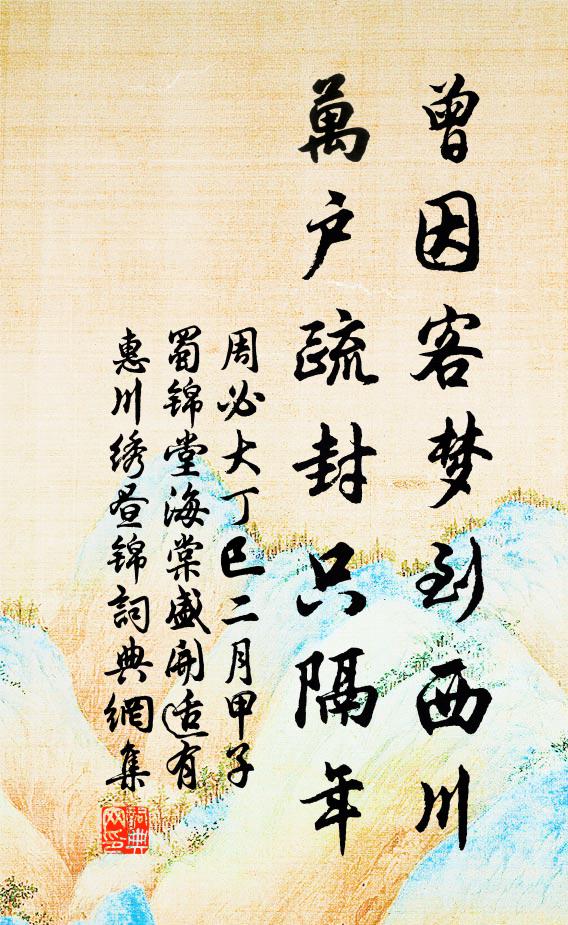 曾因客梦到西川
萬户疏封只隔年
周必大丁巳二月甲子
蜀锦堂海棠盛開适有
惠川绣昼锦詞典網集
詞典網印